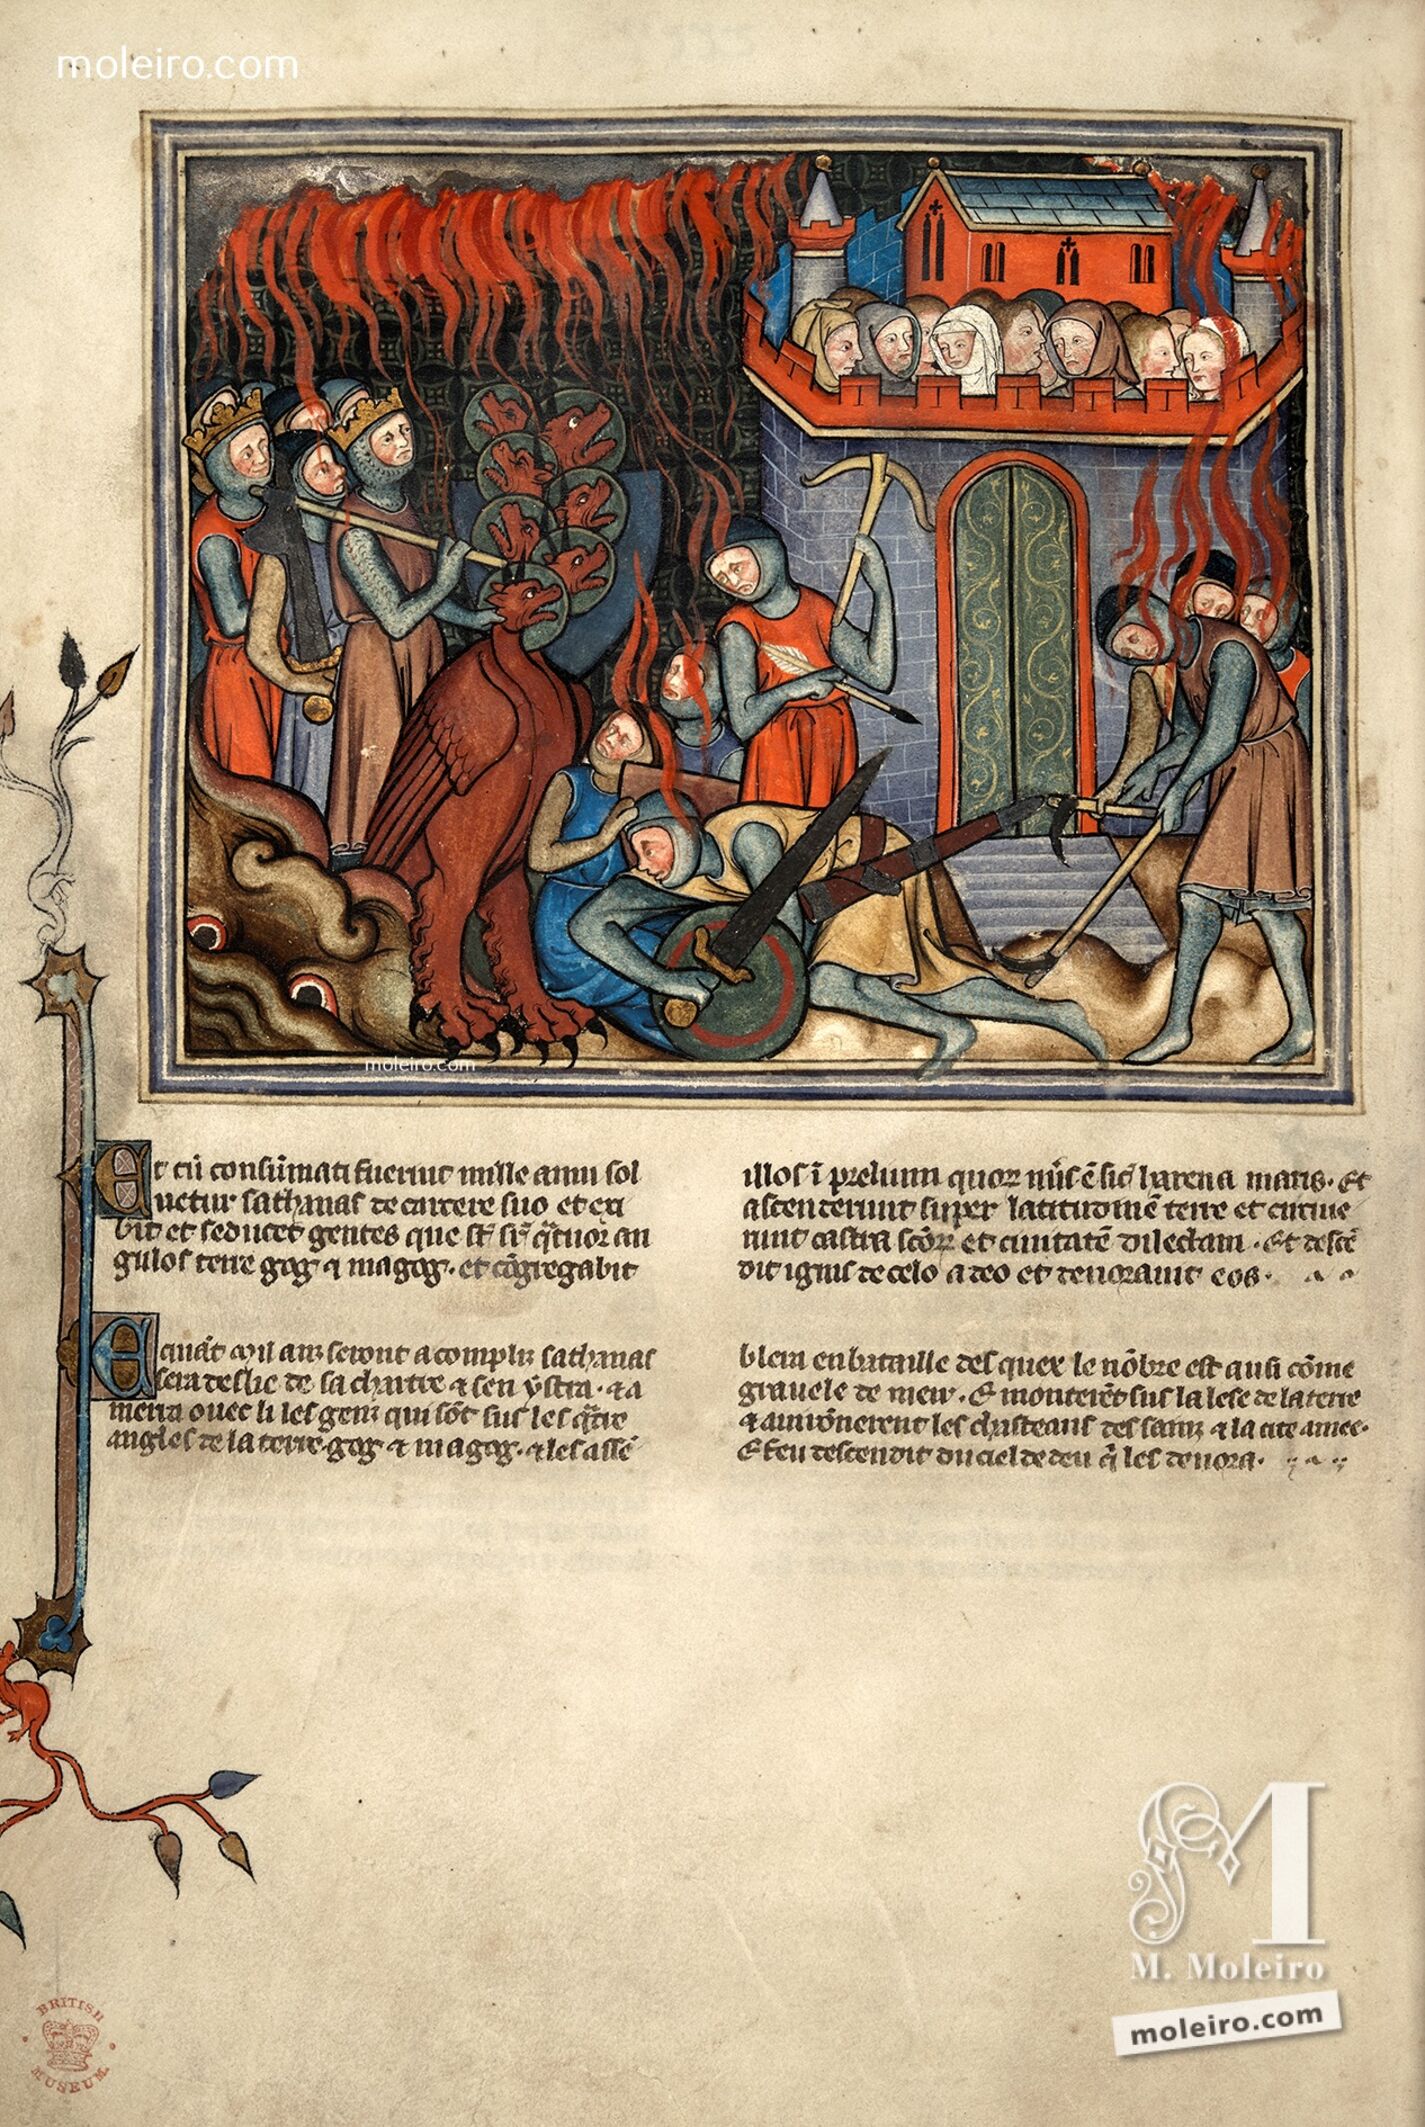 moleiro.com
moleiro.com
Et cũ consũmati fuerint mille anni sol
uetur sathanas de carcere suo et exi
bit et seducet gentes que sũt sup̃ q̃tuor an
gulos terre gog ⁊ magog. et cõgregabit
illos ĩ prelium quorꝝ nũs ẽ sic̃ harena maris. Et
ascenderunt super latitudinẽ terre et circuie
runt castra sc̃orꝝ et ciuitatẽ dilectam. Et descẽ
dit ignis de celo a deo et deuorauit eos.
E quãt mil anz seront acompliz sathanas
sera deslie de sa chartre ⁊ sen ystra. ⁊ a
menra ouec li les genz qui sõt sus les q̃tre
angles de la terre. gog ⁊ magog. ⁊ les assẽ
blera en bataille des quex le nõbre est ausi cõme
grauele de mer. Et monterẽt sus la lese de la terre
⁊ auirõnerent les chasteaus des sainz ⁊ la cite amee.
Et feu descendit du ciel de deu q̃ les deuora.
M
M. Moleiro
moleiro.com
BRITISH
MUSEUM